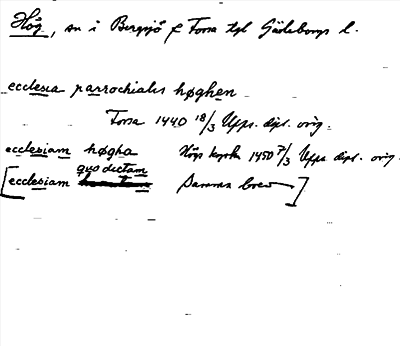 Hög, sn i Bergsjö o Forsa tgl Gävleborgs l.
ecclesia parrochialis høghen
Forsa 1440 18/3 Upps. dipl. orig.
ecclesiam høgha Högs kyrka 1450 7/3 Upps dipl. orig.
quo dictam
[ecclesiam Samma brev]